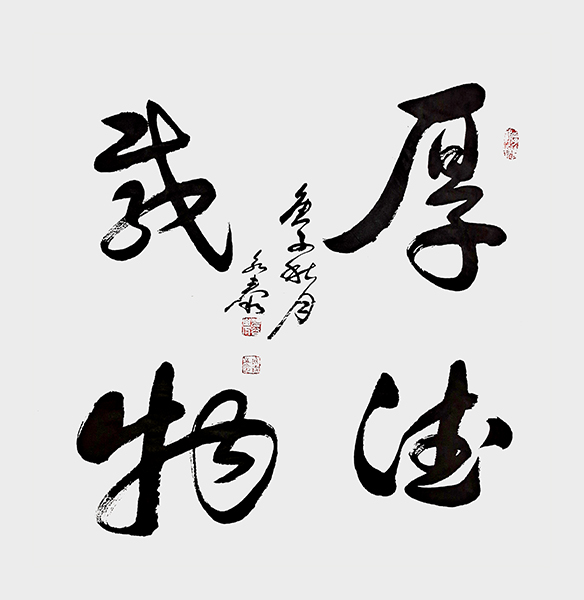 厚德
载物
庚子秋月
永泰